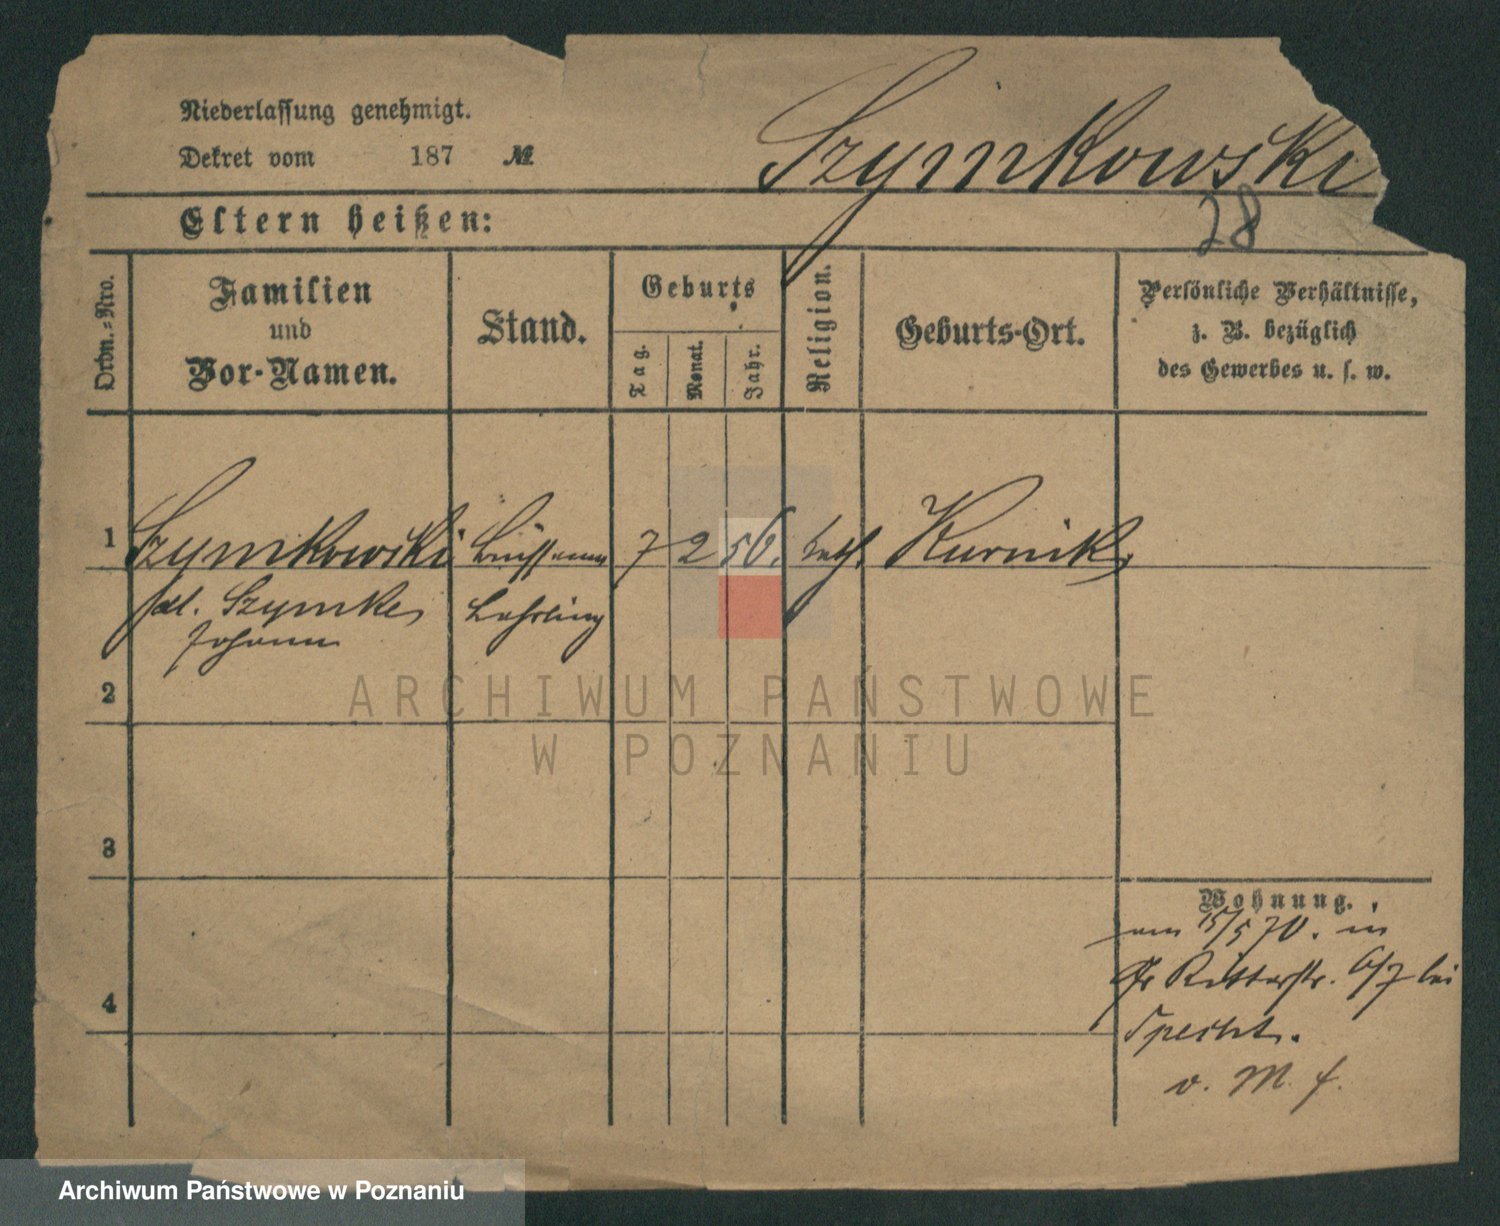 Niederlassung genehmigt.
Dekret vom 187 №
Szymkowski
28
Eltern heißen:
Ordn.=Nro.
Familien
und
Vor-Namen.
Stand.
Geburts
Tag.
Monat.
Jahr.
Religion.
Geburts-Ort.
Persönliche Verhältnisse,
z. B. bezüglich
des Gewerbes u. s. w.
1 Szymkowski 7 2 56. kath. Kurnik
Szymke
Johann
Lehrling
2
ARCHIWUM PAŃSTWOWE
W POZNANIU
3
4
Wohnung.
am 15/5 70. in
Gr Ritterstr. 6/7 bei
Specht.
v. M. f.
Archiwum Państwowe w Poznaniu